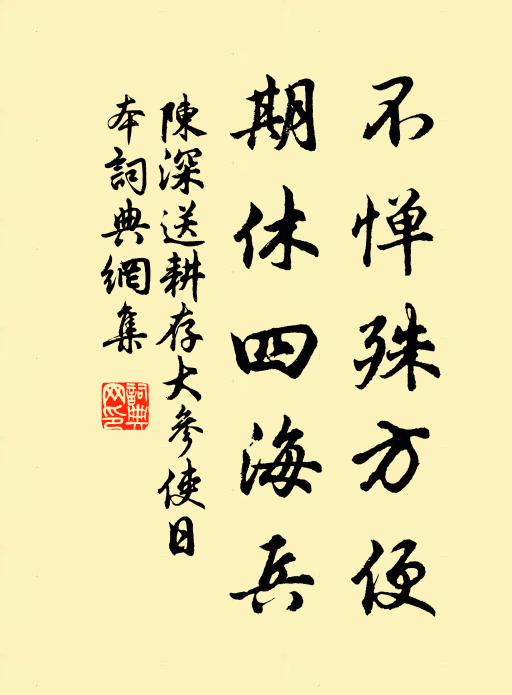 不惮殊方便
期休四海兵
陳深送耕存大參使日
本詞典網集
詞典
网印